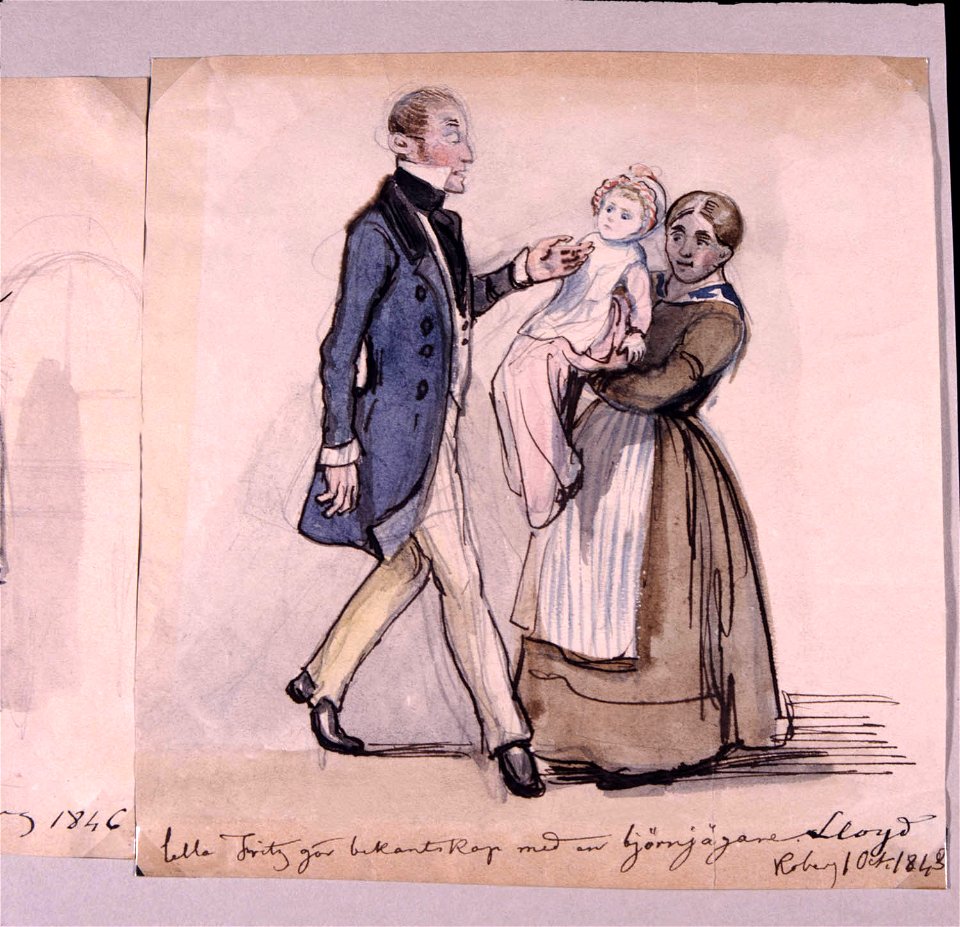 1846
lilla Fritz gör bekantskap med en björnjägare. Lloyd
Oct. 1848